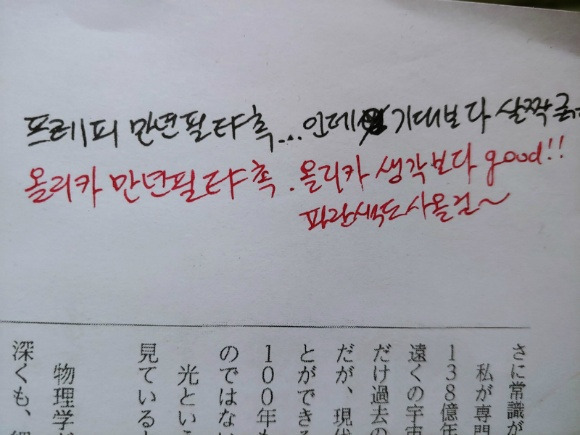 프레피 만년필 EF촉...인데 기대보다 살짝 굵
올리카 만년필 EF촉. 올리카 생각보다 good!!
파란색도 사올걸~
さに常識が
私が専門
138億年
遠くの宇宙
だけ過去の
だが、現代
とができる
100年も
のではない
光という
見ていると
物理学
深くも、